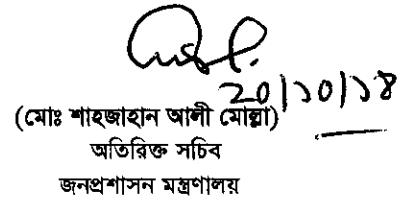 ২০|১০|১৪
(মোঃ শাহজাহান আলী মোল্লা)
অতিরিক্ত সচিব
জনপ্রশাসন মন্ত্রণালয়